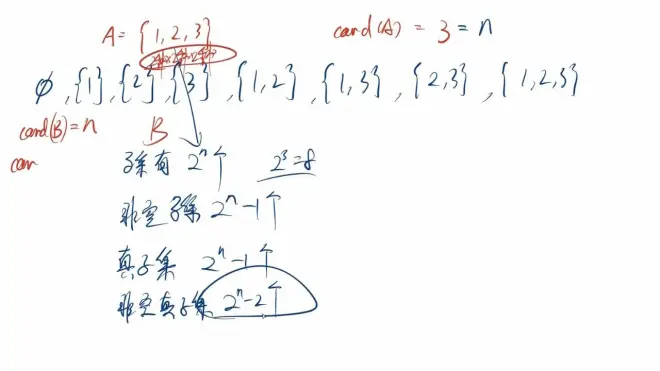 A = {1, 2, 3}   card(A) = 3 = n
∅, {1}, {2}, {3}, {1, 2}, {1, 3}, {2, 3}, {1, 2, 3}
card(B) = n   B
car
子集有 2ⁿ个   2³=8
非空子集 2ⁿ-1个
真子集 2ⁿ-1个
非空真子集 2ⁿ-2个